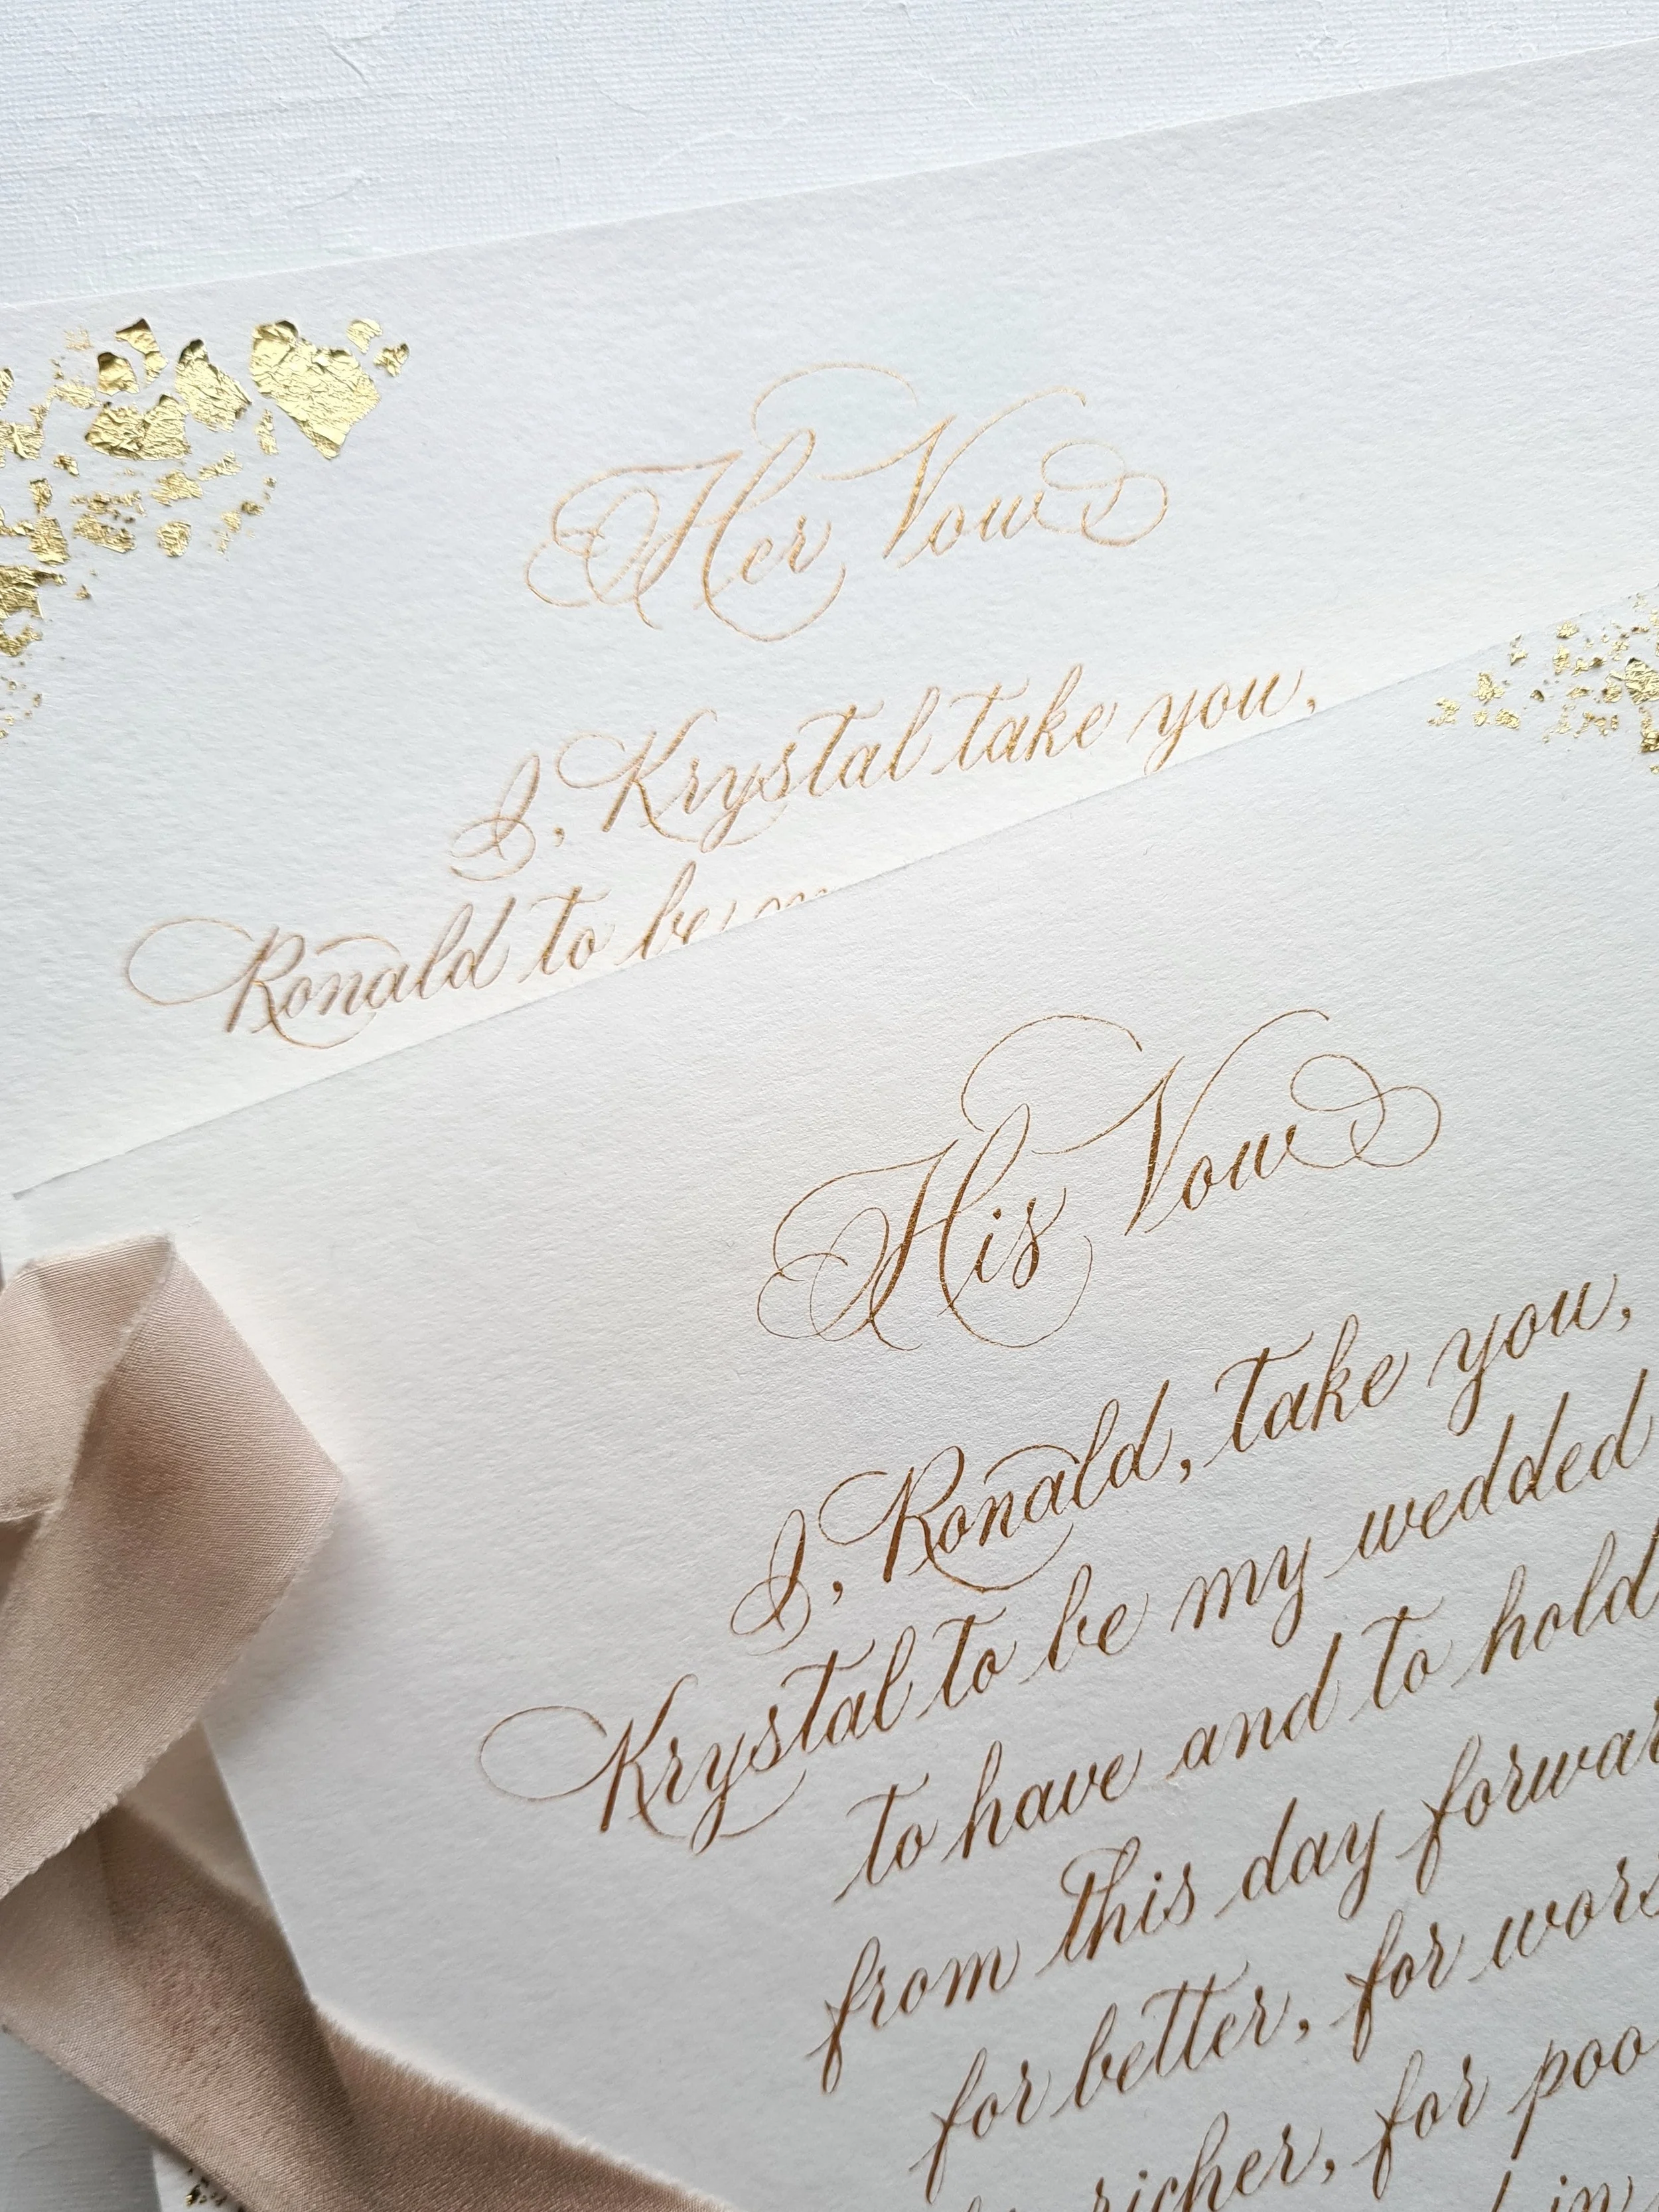 Her Vow
I, Krystal take you,
Ronald to be
His Vow
I, Ronald, take you,
Krystal to be my wedded
to have and to hold
from this day forwar
for better, for wors
richer, for poo
in